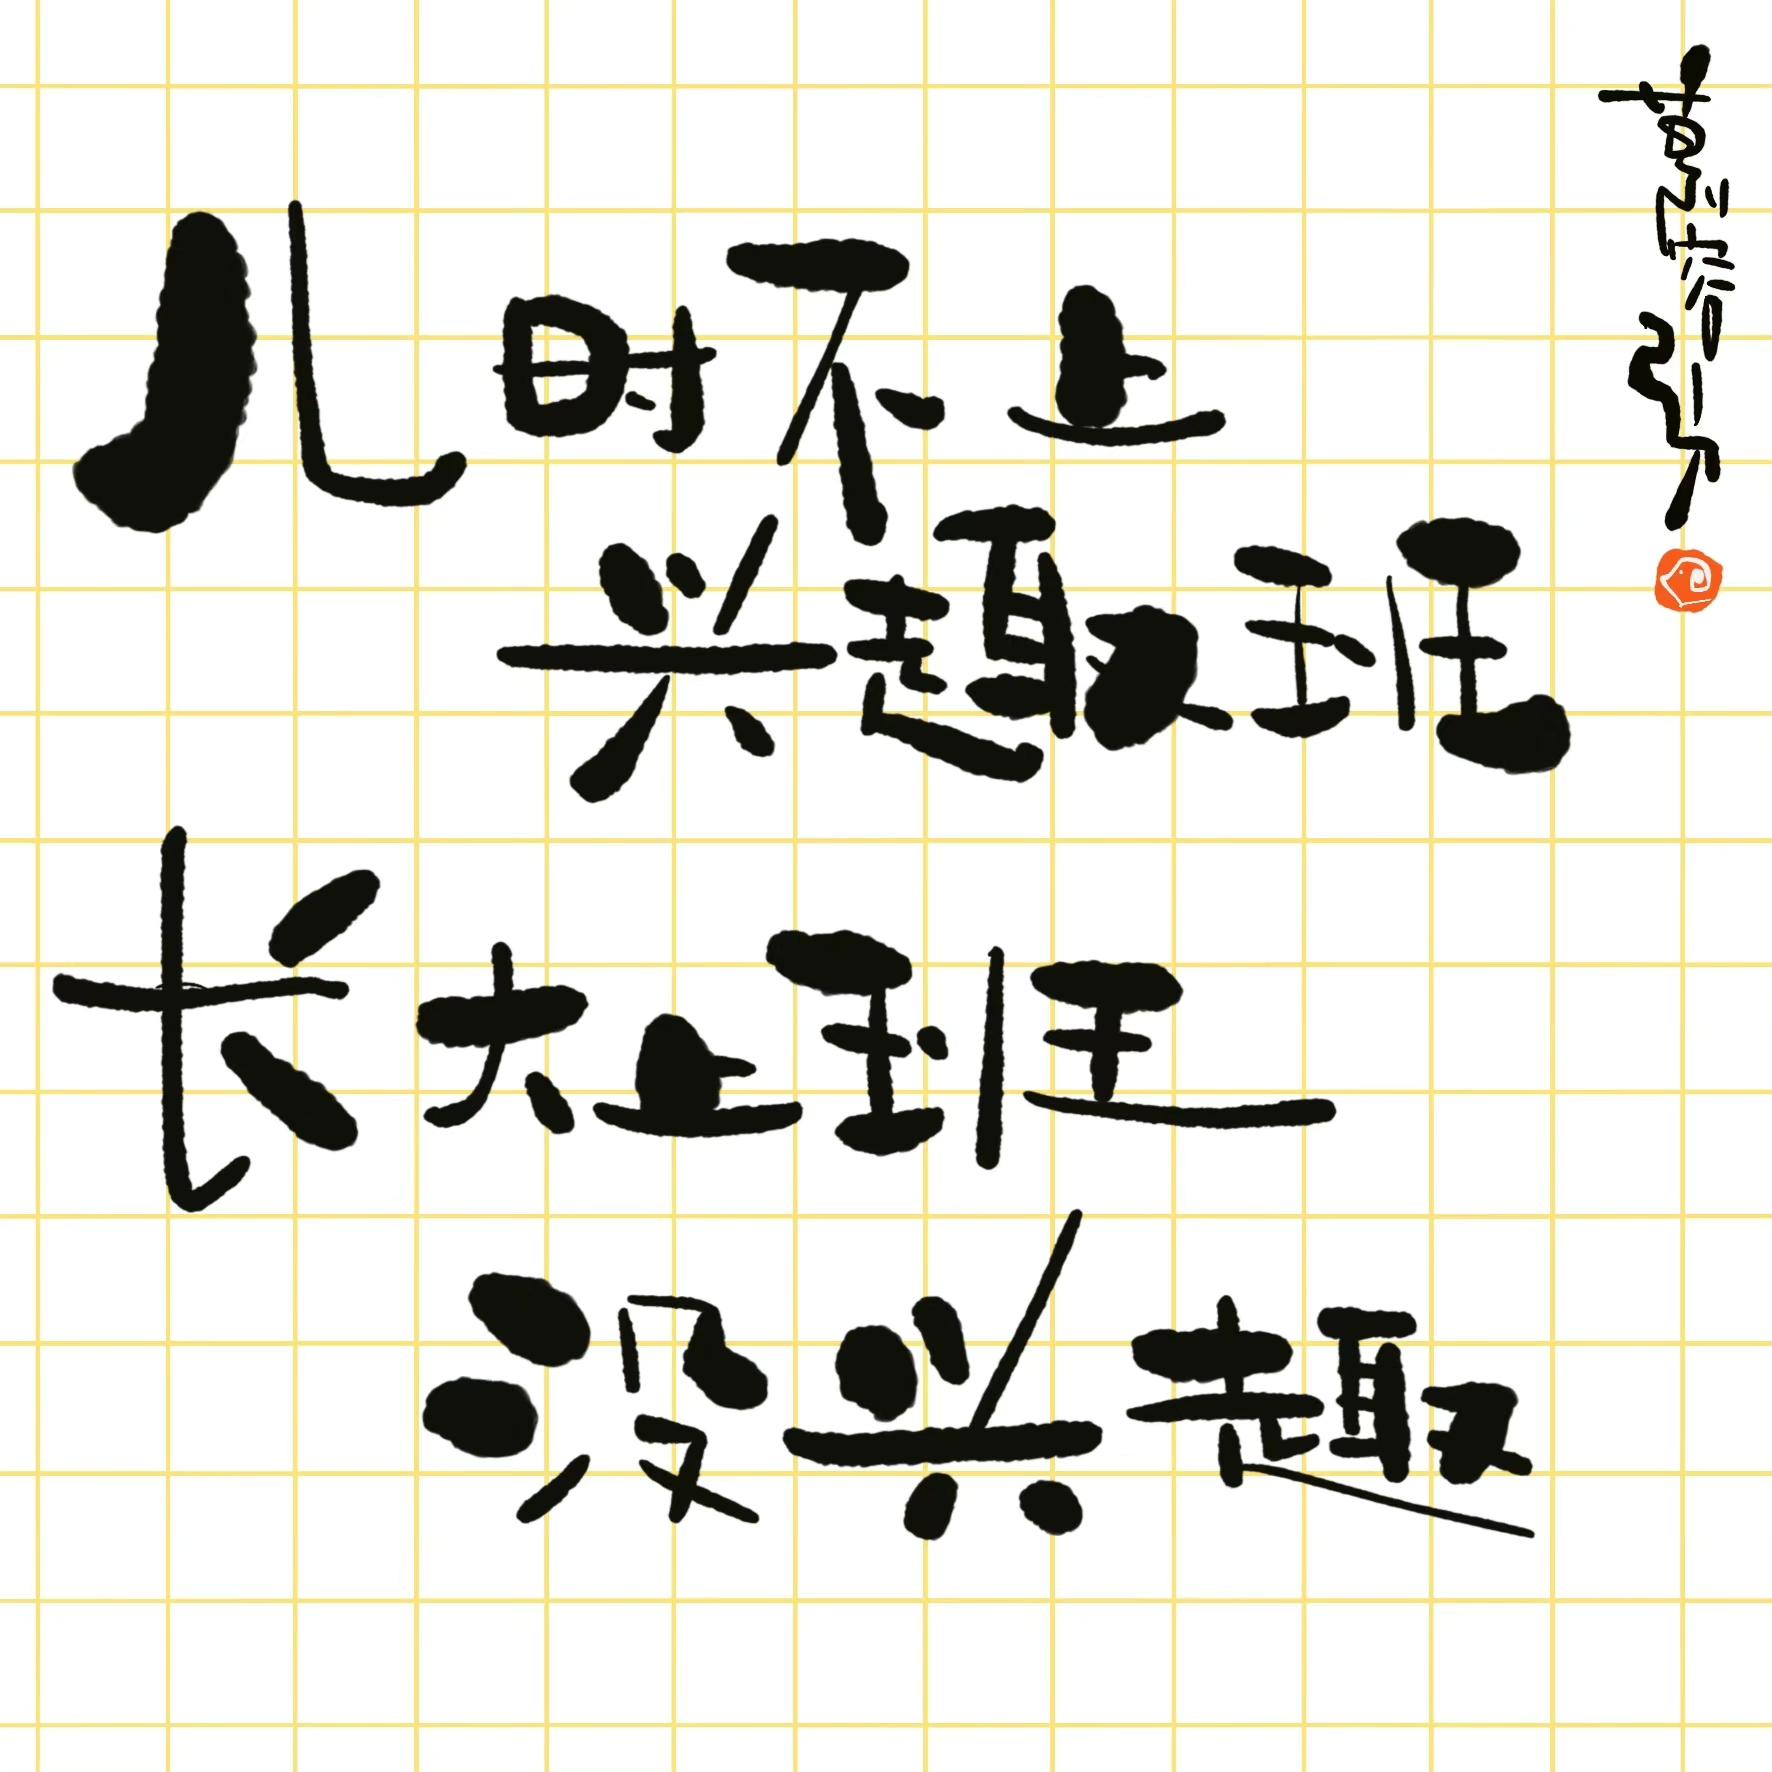 儿时不上
兴趣班
长大上班
没兴趣